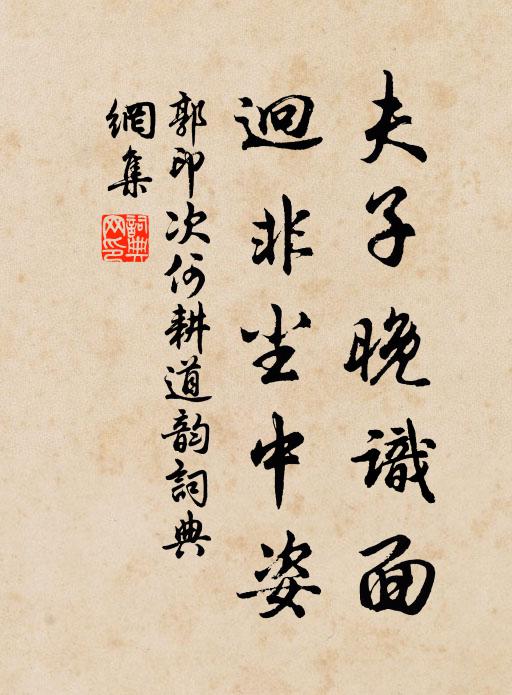 夫子晚識面
迥非尘中姿
郭印次何耕道韵詞典
網集
詞典
网印